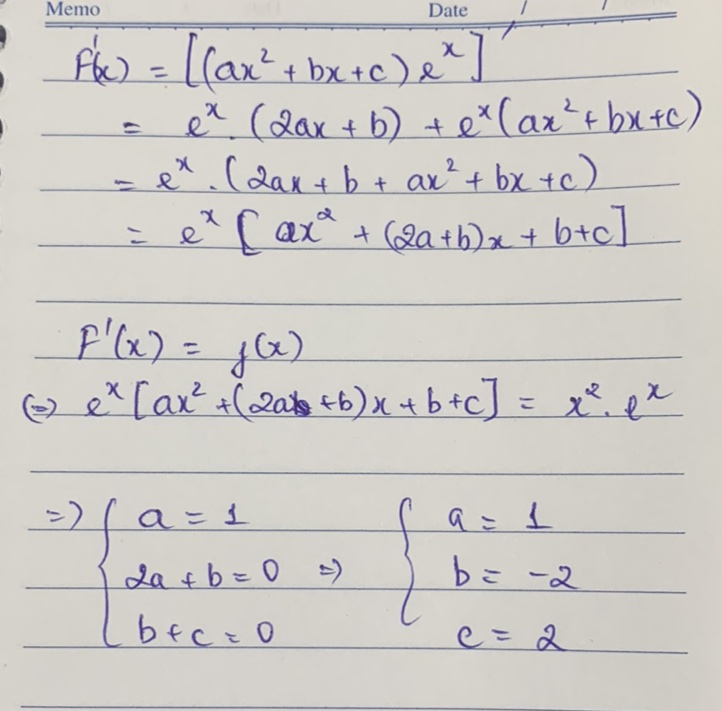 Memo Date / /
F'(x) = [(ax² + bx + c) eˣ]
= eˣ. (2ax + b) + eˣ(ax² + bx + c)
= eˣ. (2ax + b + ax² + bx + c)
= eˣ [ ax² + (2a+b)x + b+c]
F'(x) = f(x)
(=) eˣ [ax² + (2a + b)x + b + c] = x². eˣ
=) { a = 1 { a = 1
2a + b = 0 =) b = -2
b + c = 0 c = 2